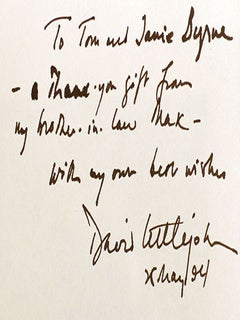 To Tom and Janie Byrne
- a Thank-you gift from
my brother-in-law Mak -
With my own best wishes
David Littlejohn
May 94